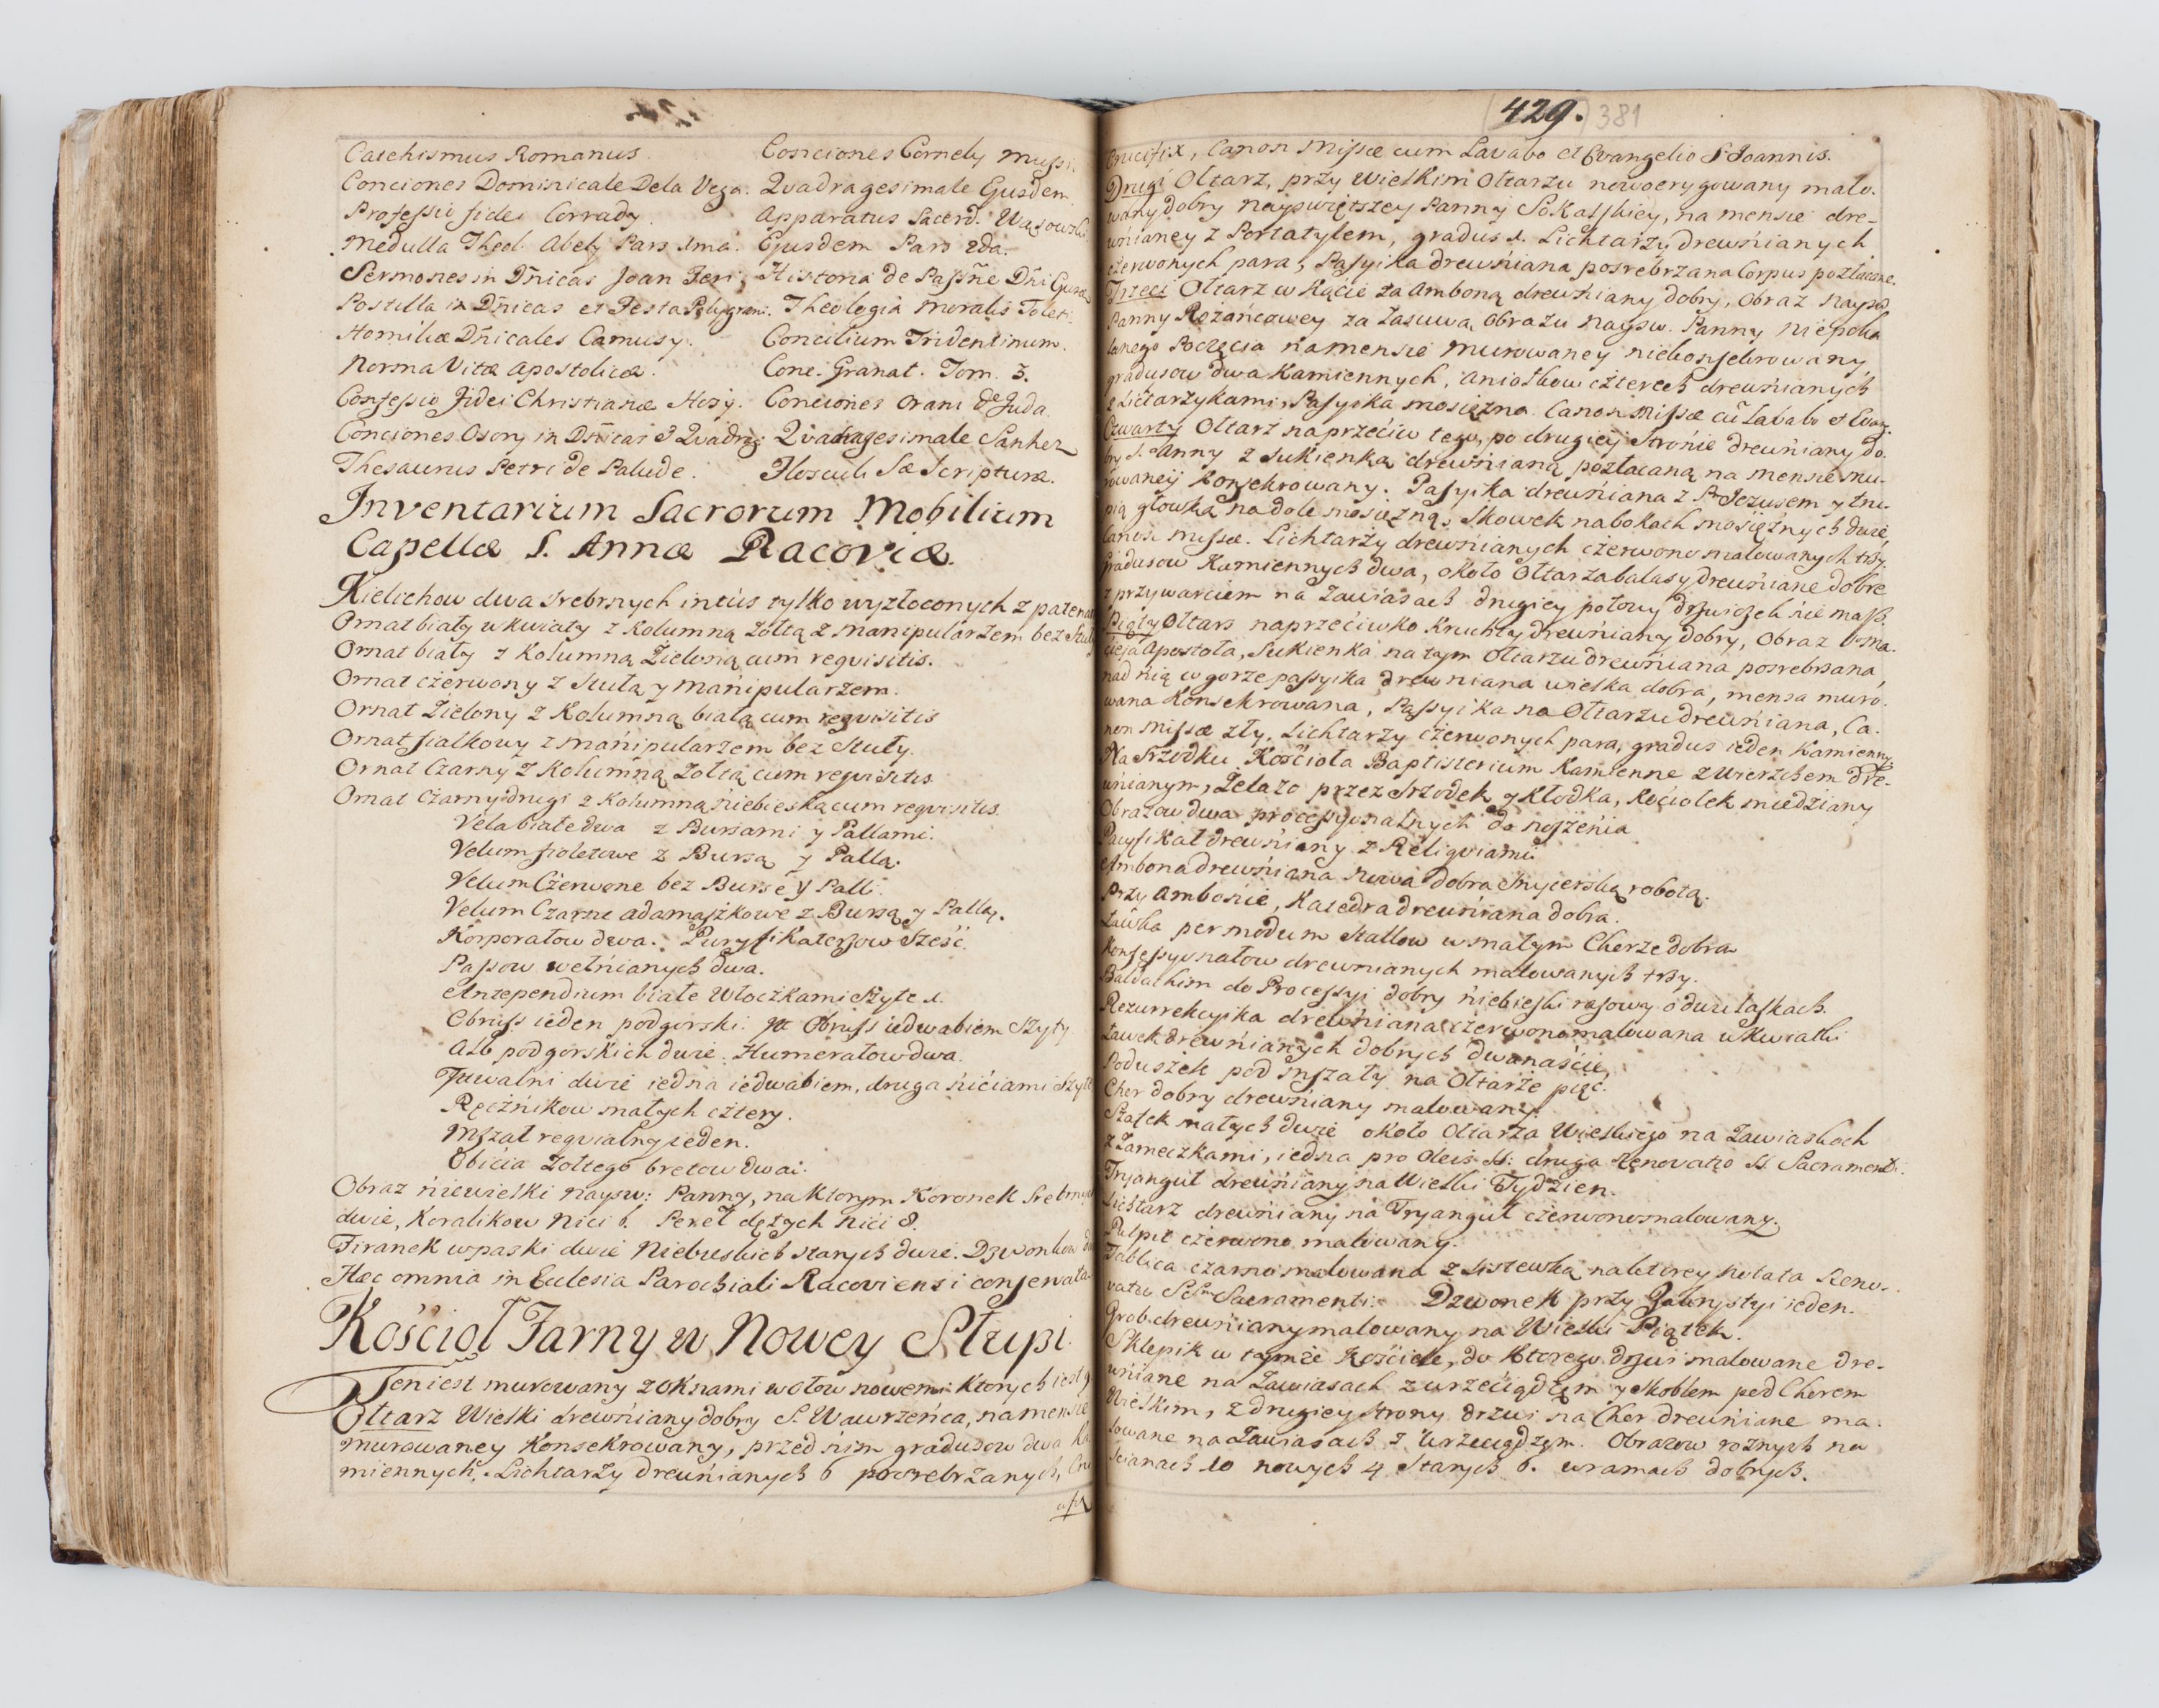 Catechismus Romanus. Conciones Cornely Mussi.
Conciones Dominicale Dela Vega. Qvadragesimale Ejusdem
Professio fidei Corrady. Apparatus Sacerd. Wąsowski
Medulla Theol. Abely Pars 1ma. Ejusdem Pars 2da.
Sermones in Dñicas Joan Feri; Historia de Passñe Dñi
Postilla in Dñicas et Festa Theologia Moralis Toleti
Homiliæ Dñicales Camusy. Concilium Tridentinum.
Norma Vitæ Apostolicæ. Conc. Granat. Tom. 3.
Confessio Fidei Christianæ Hosy. Conciones Orani de Juda.
Conciones Osory in Dñicas & Qvadrag: Qvadragesimale Sanhez
Thesaurus Petri de Palude. Flosculi Sæ Scripturæ.
Inventarium Sacrorum Mobilium
Capellæ S. Annæ Racoviæ.
Kielichow dwa srebrnych intus tylko wyzłoconych z patena
Ornat biały w kwiaty z Kolumną żołtą z Manipularzem bez
Ornat biały z Kolumną Zieloną cum reqvisitis.
Ornat czerwony z Stułą y Manipularzem.
Ornat Zielony z Kolumną białą cum reqvisitis
Ornat fiałkowy z Manipularzem bez Stuły.
Ornat Czarny z Kolumną Zołtą cum reqvisitis
Ornat Czarny drugi z Kolumną niebieską cum reqvisitis.
Vela białe dwa z Bursami y Pallami.
Velum fioletowe z Bursą y Pallą.
Velum Czerwone bez Bursę y Palli.
Velum Czarne adamaszkowe z Bursą y Pallą.
Korporałow dwa. Puryfikaterzow Sześć.
Passow wełnianych dwa.
Antependium białe Włoczkami Szyte 1.
Obruss ieden podgorski. Obruss iedwabiem Szyty
Alb podgorskich dwie. Humerałow dwa.
Tuwalni dwie iedna iedwabiem, druga nićiami Szyte
Ręcżnikow małych cżtery.
Mszał reqvialny ieden.
Obićia Zołtego bretow dwa.
Obraz niewielki Nayśw: Panny, na Ktorym Koronek Srebrnych
dwie, Koralikow nici 6. Pereł dętych nici 8.
Firanek w paski dwie Niebieskich starych dwie. Dzwonkow
Hæc omnia in Ecclesia Parochiali Racoviensi conservata
Kościoł Farny w Nowey Słupi.
Ten iest murowany z oknami w ołow nowemi Ktorych iest
Ołtarz Wielki drewniany dobry S. Wawrzeńca, na mensie
murowaney Konsekrowany, przed nim gradusow dwa ka
miennych. Lichtarzy drewnianych 6 posrebrzanych,
429. 381
Crucifix, Canon Missæ cum Lavabo et Evangelio S. Joannis.
Drugi Ołtarz, przy Wielkim Ołtarzu nowo erygowany malo-
wany dobry Nayswiętszey Panny Sokalskiey, na mensie dre-
wnianey z Portatylem, gradus 1. Lichtarzy drewnianych
czerwonych para, Passyika drewniana posrebrzana Corpus pozłacane.
Trzeci Ołtarz w Kącie za Amboną drewniany dobry, Obraz Nayśw
Panny Rożańcowey za Zasuwą Obrazu Nayśw. Panny niepoka
lanego Poczęcia na mensie murowaney niekonsekrowany,
gradusow dwa Kamiennych, Aniołkow czterech drewnianych
z Lictarzykami, Passyika mosiężna. Canon Missæ cũ Lavabo et Evan.
Czwarty Ołtarz naprzećiw tego, po drugiey Stronie drewniany do-
bry S. Anny z sukienką drewnianą pozłacaną na mensie mu-
rowaney konsekrowany. Passyika drewniana z P. Jezusem y tru-
pią głowką na dole mosiężną, Skowek na bokach mosiężnych dwie,
Canon Missæ. Lichtarzy drewnianych czerwono malowanych trzy.
Gradusow Kamiennych dwa, około Ołtarza balasy drewniane dobre
z przywarciem na Zawiasach drugiey połowy drzwiczek nie masz.
Piąty Ołtarz naprzećiwko Kruchty drewniany dobry, Obraz S. Ma-
cieja Apostoła, Sukienka na tym Ołtarzu drewniana posrebrzana,
nad nią w gorze passyika drewniana wielka dobra, mensa muro-
wana Konsekrowana, Passyika na Ołtarzu drewniana, Ca-
non Missæ zły, Lichtarzy czerwonych para, gradus ieden kamienny
Na Srzodku Kościoła Baptisterium Kamienne z wierzchem dre-
wnianym, Żelazo przez Srzodek y Kłodka, Kociołek miedziany
Obrazow dwa processyonalnych do noszenia
Pacyfikał drewniany z Reliqviami
Ambona drewniana nowa dobra Snycerską robotą.
Przy Ambonie, Katedra drewniana dobra.
Ławka per modum Stallow w małym Chorze dobra
Konfessyonałow drewnianych malowanych trzy.
Baldachim do Processyi dobry niebieski rasowy o dwu laskach.
Rezurrekcyika drewniana czerwono malowana w kwiatki
Ławek drewnianych dobrych dwanaście,
Poduszek pod mszały na Ołtarze pięć.
Chor dobry drewniany malowany.
Szafek małych dwie około Ołtarza Wielkiego na Zawiaskach
z Zameczkami, iedna pro Oleis SS: druga Renovatio SS Sacramenti.
Tryanguł drewniany na Wielki Tydzien.
Lichtarz drewniany na Tryanguł czerwono malowany.
Pulpit czerwono malowany.
Tablica czarno malowana z listewką na ktorey Notata Reno-
vatio SSmi Sacramenti. Dzwonek przy Zakrystyi ieden.
Grob drewniany malowany na Wielki Piątek.
Sklepik w tymże Kościele, do Ktorego drzwi malowane dre-
wniane na Zawiasach z wrzećiądzem y Skoblem pod Chorem
Wielkim, z drugiey strony drzwi na Chor drewniane ma-
lowane na Zawiasach z Wrzeciądzem. Obrazow rożnych na
Scianach 10 nowych 4 Starych 6. w ramach dobrych.